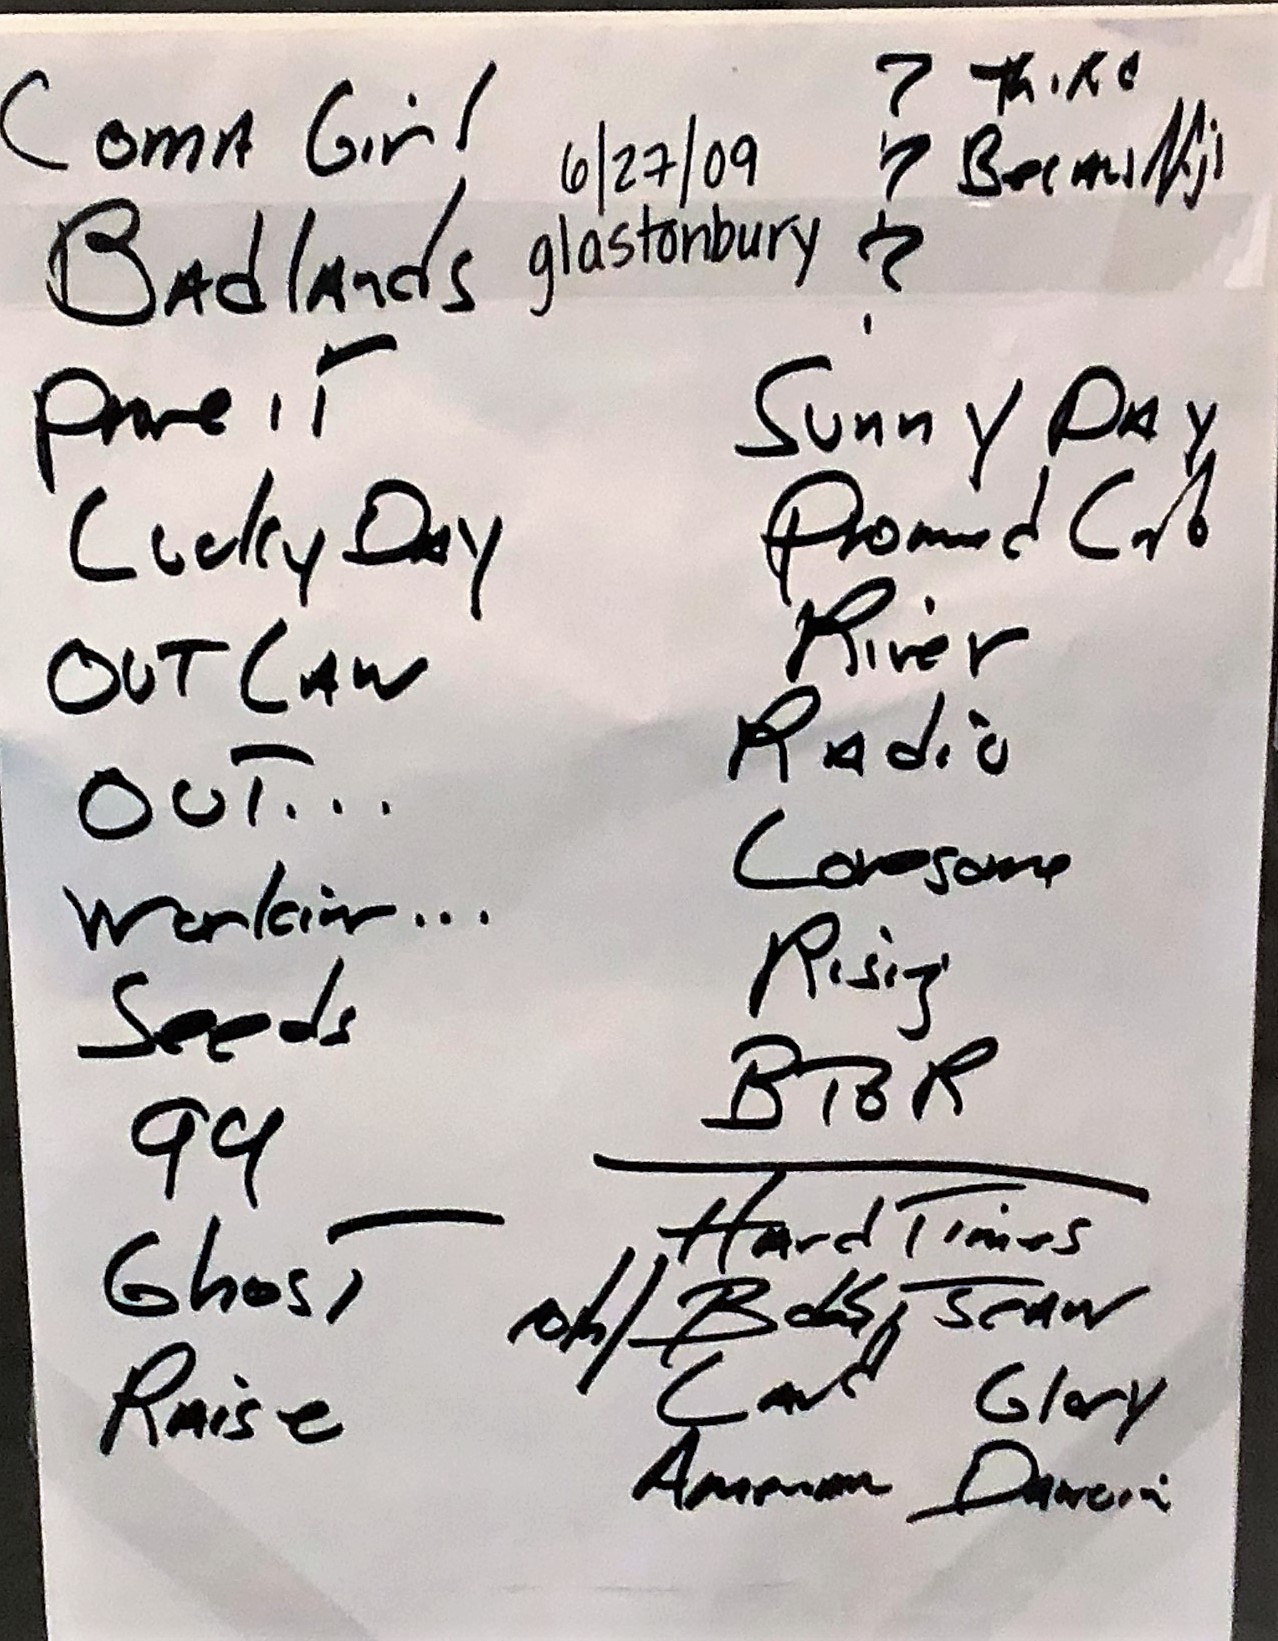 Coma Girl
Badlands
Prove iT
Lucky Day
OUTLAW
OUT...
Workin...
Seeds
99
GhosT
Raise
6/27/09
glastonbury
? Third
? Because Night
?
Sunny Day
Promised Land
River
Radio
Lonesome
Rising
BTBR
Hard Times
Land Glory
American Dancin